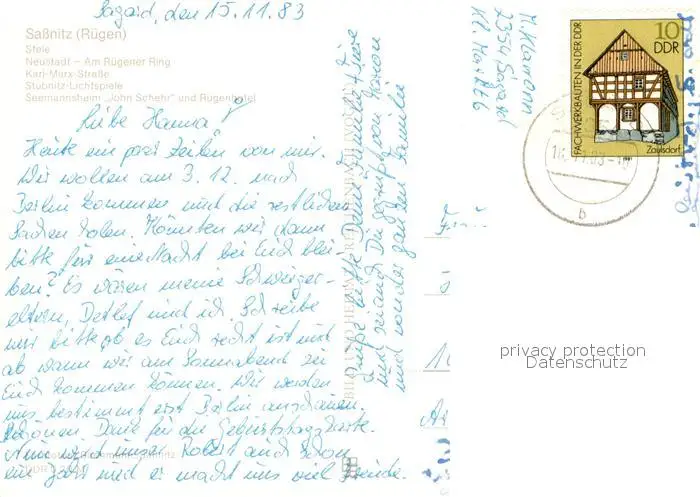 Sagard, den 15.11.83
Saßnitz (Rügen)
Stele
Neustadt - Am Rügener Ring
Karl-Marx-Straße
Stubnitz-Lichtspiele
Seemannsheim „John Schehr" und Rügenhotel
Liebe Hanna!
Heute ein paar Zeilen von mir.
Wir wollen am 3.12. nach
Berlin kommen und die restlichen
Sachen holen. Könnten wir dann
bitte für eine Nacht bei Euch blei-
ben? Es wären meine Schwieger-
eltern, Detlef und ich. Schreibe
mir bitte ob es Euch recht ist und
ab wann wir am Sonnabend zu
Euch kommen können. Wir werden
uns bestimmt erst Berlin anschauen.
Schönen Dank für die Geburtstagskarte.
Nun wird unser Robert auch schon
ein Jahr und er macht uns viel Freude.
Grüße bitte Deine Familie
und sei auch Du gegrüßt von Marion
und von der ganzen Familie
2354 Sagard
10
DDR
FACHWERKBAUTEN IN DER DDR
Zaulsdorf
b
privacy protection
Datenschutz